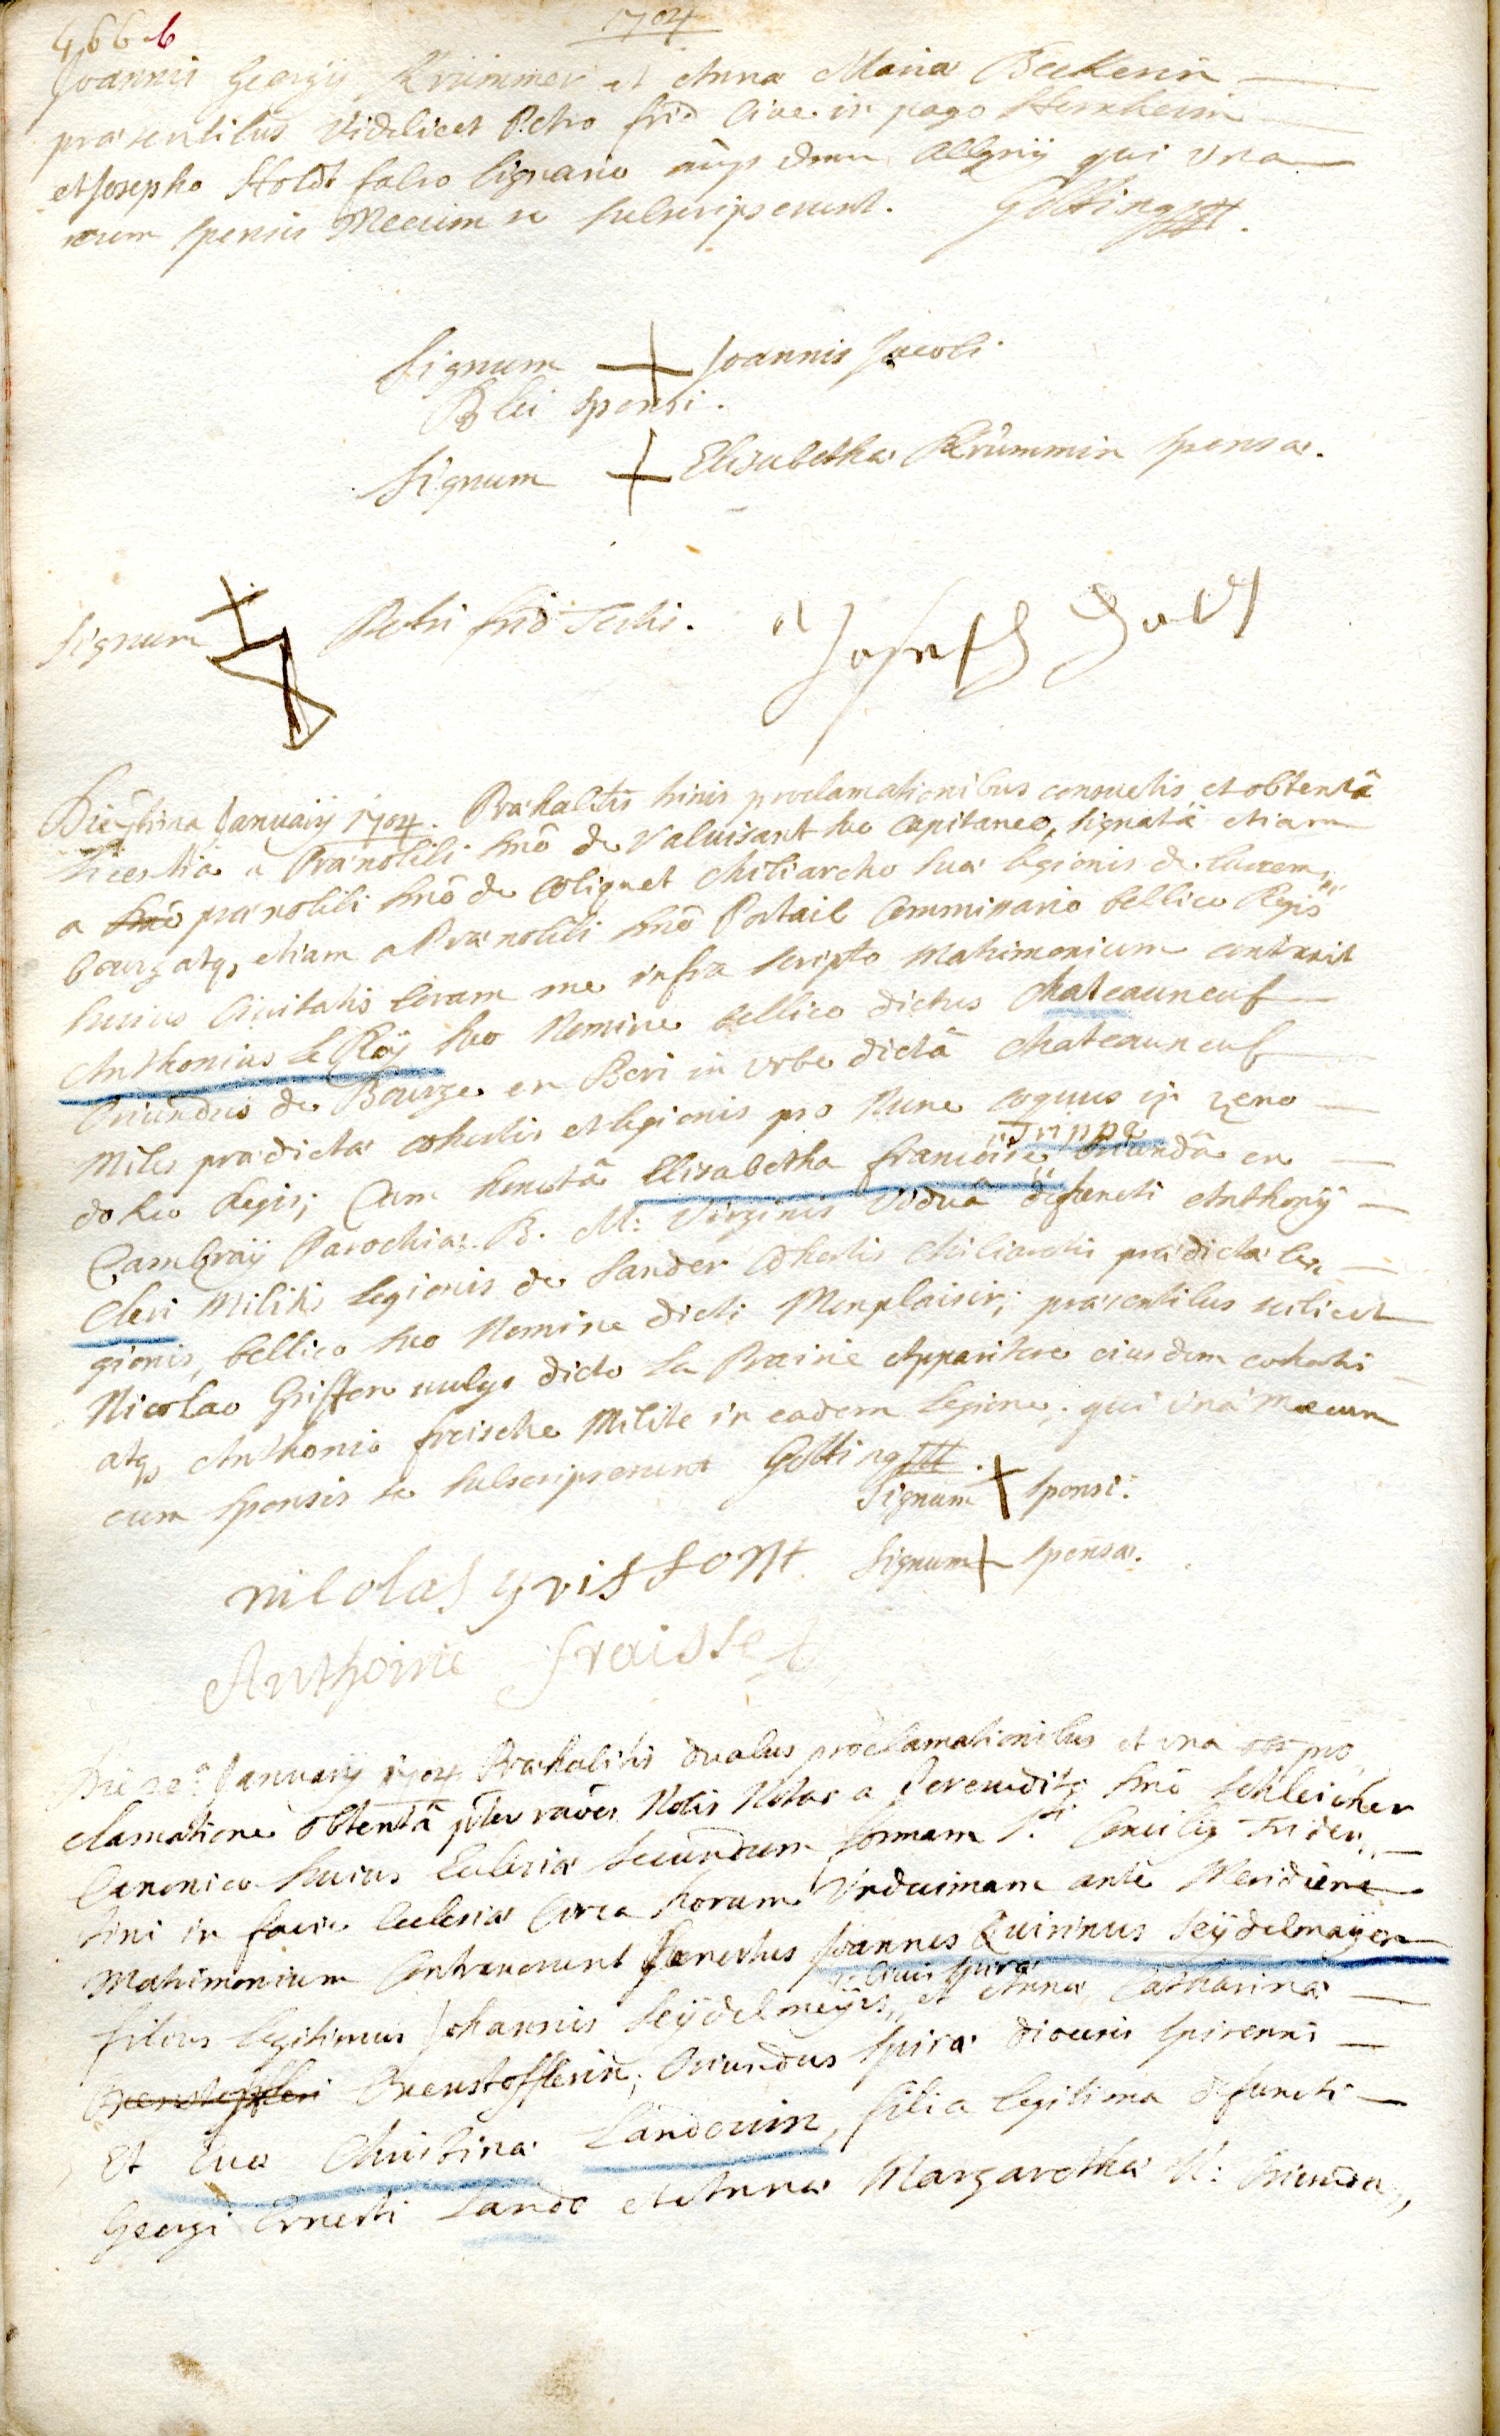 466 b
1704
Joannis Georgij Krümmer et Anna Maria Beckerin
præsentibus Videlicet Petro frid Cive in pago Herxheim
et Josepho Holdt fabro lignario qui una
cum sponsis Mecum se subscripserunt. Götting
Signum + Joannis Jacobi
sponsi.
Signum + Elisabetha Krümmin sponsæ.
Signum Petri frid Testis. Joseph
Januarij 1704. Præhabitis trinis proclamationibus consuetis et obtentâ
licentiâ a Prænobili Dnô de Valuisant suo Capitaneo, signatâ etiam
a Dnô prænobili Dnô de Colignet Chiliarcho suæ legionis de Luxem,,
bourg atq, etiam a Prænobili Dnô Portail Commissario bellico Regis
huius Civitatis Coram me infra scripto Matrimonium contraxit
Anthonius Le Roÿ suo Nomine bellico dictus Chateauneuf
Oriundus de Bourge en Beri in Urbe dictâ Chateauneuf
Miles prædictæ cohortis et legionis pro Nunc coquus in xeno
dochio Regis; Cum honestâ Elisabetha francoise oriundâ en
Cambraÿ Parochiæ B. M: Virginis Viduâ defuncti Anthonij
Cleri Militis legionis de Sander Cohortis Chiliarchi prædictæ le
gionis, bellico suo Nomine dicti Monplaisir; præsentibus scilicet
Nicolao Griffon vulgo dicto La Prairie Apparitore eiusdem cohortis
atq, Anthonio freische Milite in eadem Legione, qui unà mecum
cum sponsis se subscripserunt Götting
Signum + sponsi:
nicolas grisson Signum + sponsæ.
Anthoine fraisse
Januarij 1704 Præhabitis duabus proclamationibus et una pro
clamatione obtentâ Nobis Notas a Dnô Schleicher
Canonico huius Ecclesiæ secundum formam S.ti Concilij Triden,,
tini in facie Ecclesiæ Circa horam Undecimam ante Meridiem
Matrimonium Contraxerunt honestus Joannes Quirinus Seÿdelmaÿer
Civis Spiræ
filius legitimus Johannis Seÿdelmeÿers,, et Annæ Catharinæ
Brenstofflerin, Oriundus Spiræ diœcesis Spirensis
Et Eva Christina Landovin, filia legitima defuncti
Georgi Ernesti Lando et Annæ Margarethæ N: Oriunda,,